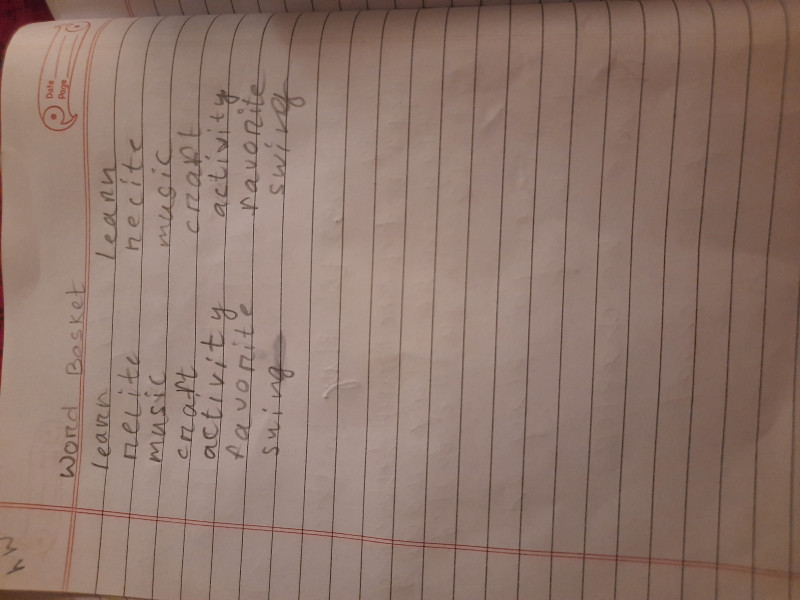 HW
Date
Page
Word Basket
learn learn
recite recite
music music
craft craft
activity activity
favorite favorite
swing swing